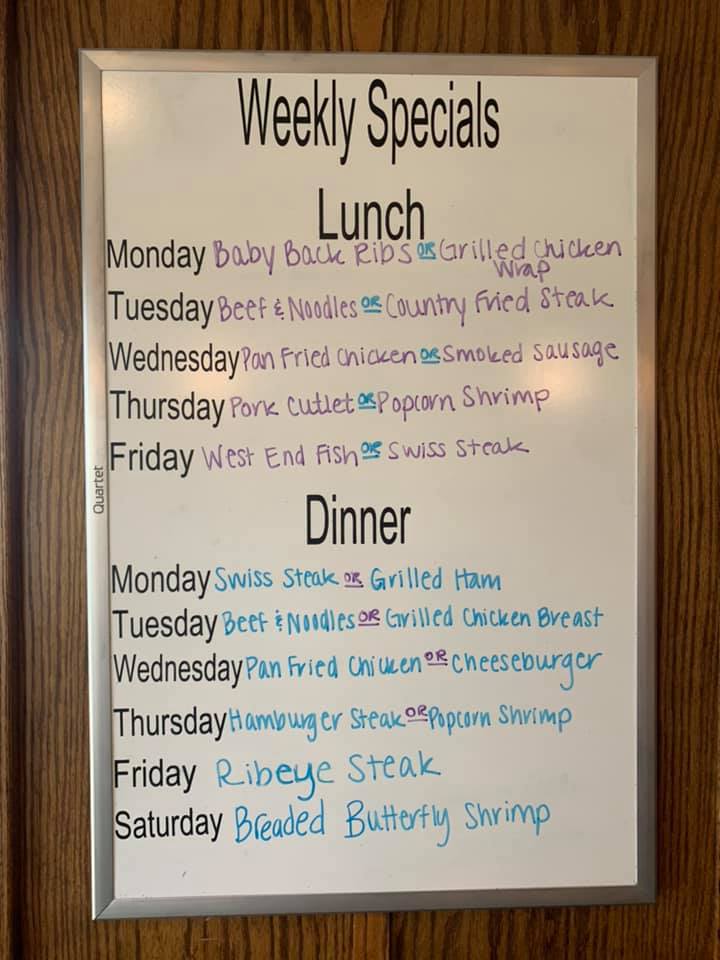 Weekly Specials
Lunch
Monday Baby Back Ribs OR Grilled Chicken
Wrap
Tuesday Beef & Noodles OR Country Fried Steak
Wednesday Pan Fried Chicken OR Smoked Sausage
Thursday Pork Cutlet OR Popcorn Shrimp
Friday West End Fish OR Swiss Steak
Quartet
Dinner
Monday Swiss Steak OR Grilled Ham
Tuesday Beef & Noodles OR Grilled Chicken Breast
Wednesday Pan Fried Chicken OR Cheeseburger
Thursday Hamburger Steak OR Popcorn Shrimp
Friday Ribeye Steak
Saturday Breaded Butterfly Shrimp